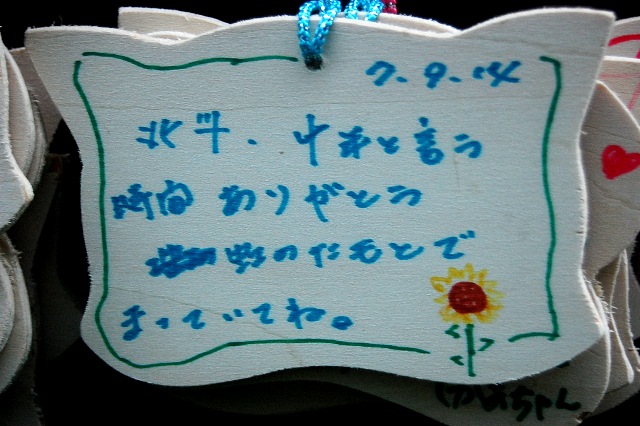 7.9.14
北斗、中来と言う
時間ありがとう
彩のたもとで
まっていてね。
ちゃん